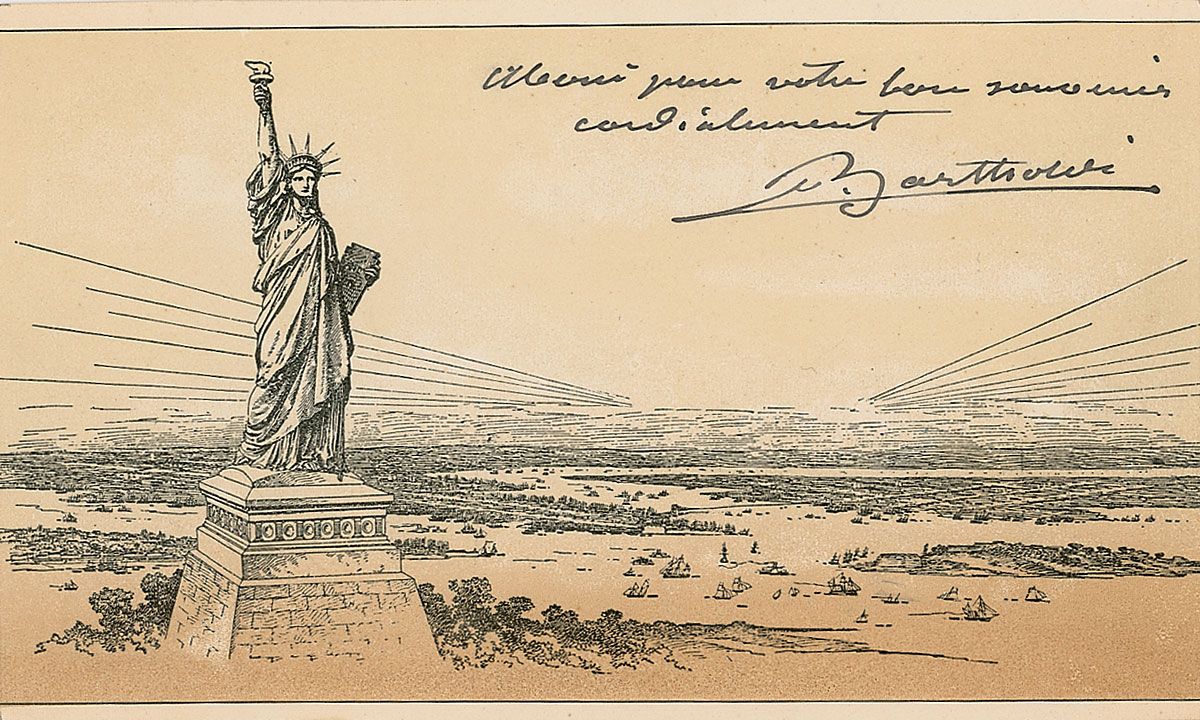 Merci pour votre bon souvenir
cordialement
Bartholdi